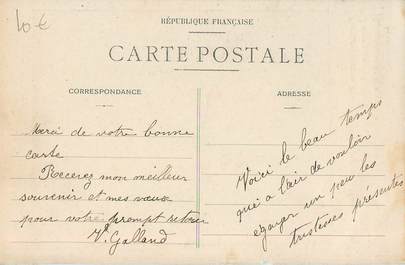 10 €
RÉPUBLIQUE FRANÇAISE
CARTE POSTALE
CORRESPONDANCE
ADRESSE
Merci de votre bonne
carte
Recevez mon meilleur
souvenir et mes vœux
pour votre prompt retour
Galland
Voici le beau temps
qui a l'air de vouloir
egayer un peu les
tristesses présentes